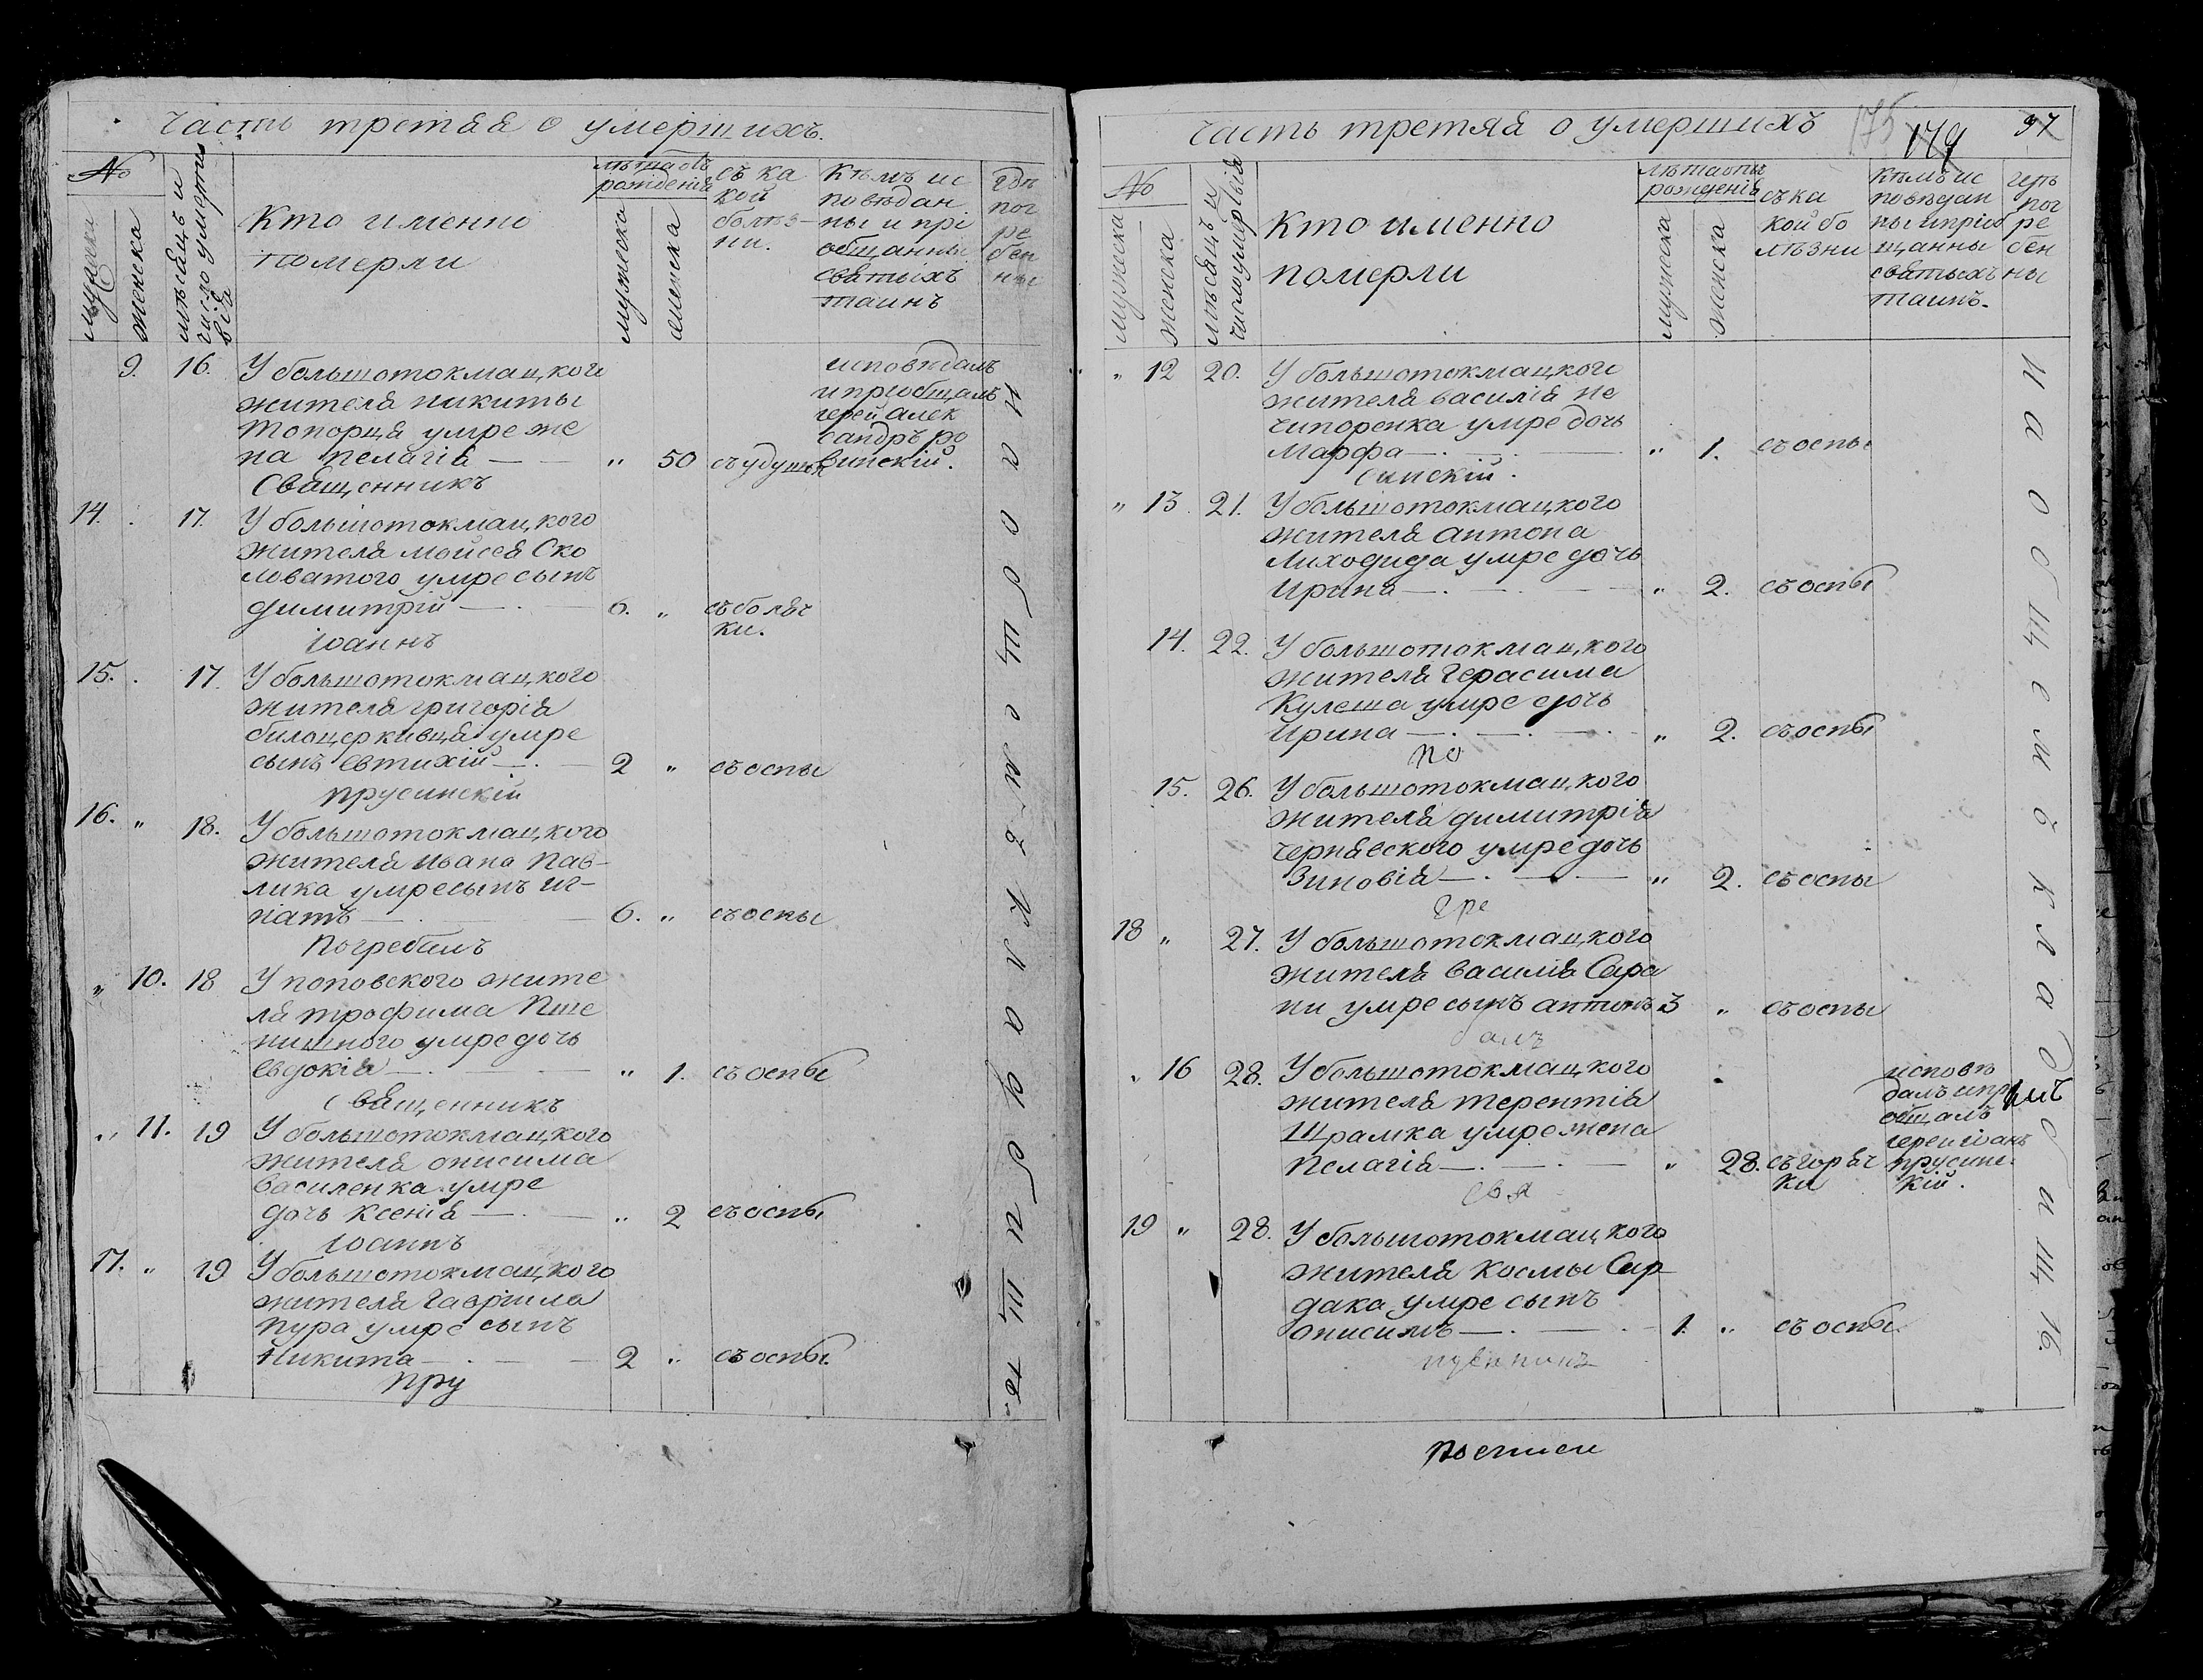 Часть третяя о умершихъ.
№
мужеска
женска
мѣсяцъ и
число умертвія
Кто именно
померли
лѣта отъ
рожденія
мужеска
женска
съ ка
кой
болѣз-
ни.
Кѣмъ ис
повѣдан
ны и прі
общанны
святыхъ
таинъ
гдѣ
пог
ре
бен
ны
9. 16. У большотокмацкого
жителя никиты
топорця умре же
на пелагія — " 50 съудушья
исповѣдалъ
и пріобщалъ
іерей алек
сандръ ро
винскій.
Священникъ
14. 17. У большотокмацкого
жителя мойсея Ско
ловатого умре сынъ
димитрій — 6. " съ боляч
ки.
іоаннъ
15. 17. У большотокмацкого
жителя григорія
билоцеркивця умре
сынъ Евтихій — 2 " съ оспы
прусинскій
16. " 18. У большотокмацкого
жителя ивана пав-
лика умре сынъ иг-
натъ — 6. " съ оспы
Погребалъ
" 10. 18 У поповского жите
ля трофима Пше
нишного умре дочь
Евдокія — " 1. съ оспы
священникъ
" 11. 19 У большотокмацкого
жителя онисима
Василенка умре
дочь ксенія — " 2 съ оспы
іоаннъ
17. " 19 У большотокмацкого
жителя гавріила
пура умре сынъ
Никита — 2 " съ оспы.
пру
На общемъ кладбищѣ
Часть третяя о умершихъ
175
179
97
№
мужеска
женска
мѣсяцъ и
число умертвія
Кто именно
померли
лѣта отъ
рожденія
мужеска
женска
съ ка
кой бо
лѣзни
Кѣмъ ис
повѣдан
ны и пріоб
щанны
святыхъ
таинъ.
гдѣ
пог
ре
бен
ны
" 12 20. У большотокмацкого
жителя василія не
чипоренка умре дочь
Марфа — " 1. съ оспы
синскій.
" 13. 21. У большотокмацкого
жителя антона
Лиходида умре дочь
Ирина — " 2. съ оспы
14. 22. У большотокмацкого
жителя Герасима
Кулеша умре дочь
Ирина — " 2. съ оспы
по
15. 26. У большотокмацкого
жителя димитрія
чернявского умре дочь
Зиновія — " 2. съ оспы
гре
18 " 27. У большотокмацкого
жителя василія Сара
ни умре сынъ антонъ 3 " съ оспы
балъ
" 16 28. У большотокмацкого
жителя терентія
Шрамка умре жена
Пелагія — " 28. съ горяч
ки
исповѣ
далъ и прі
общалъ
іерей іоанъ
прусинс-
кій.
свя
19 " 28. У большотокмацкого
жителя космы Сар
дака умре сынъ
онисимъ — 1. " съ оспы.
щенникъ
На общемъ кладбищѣ.